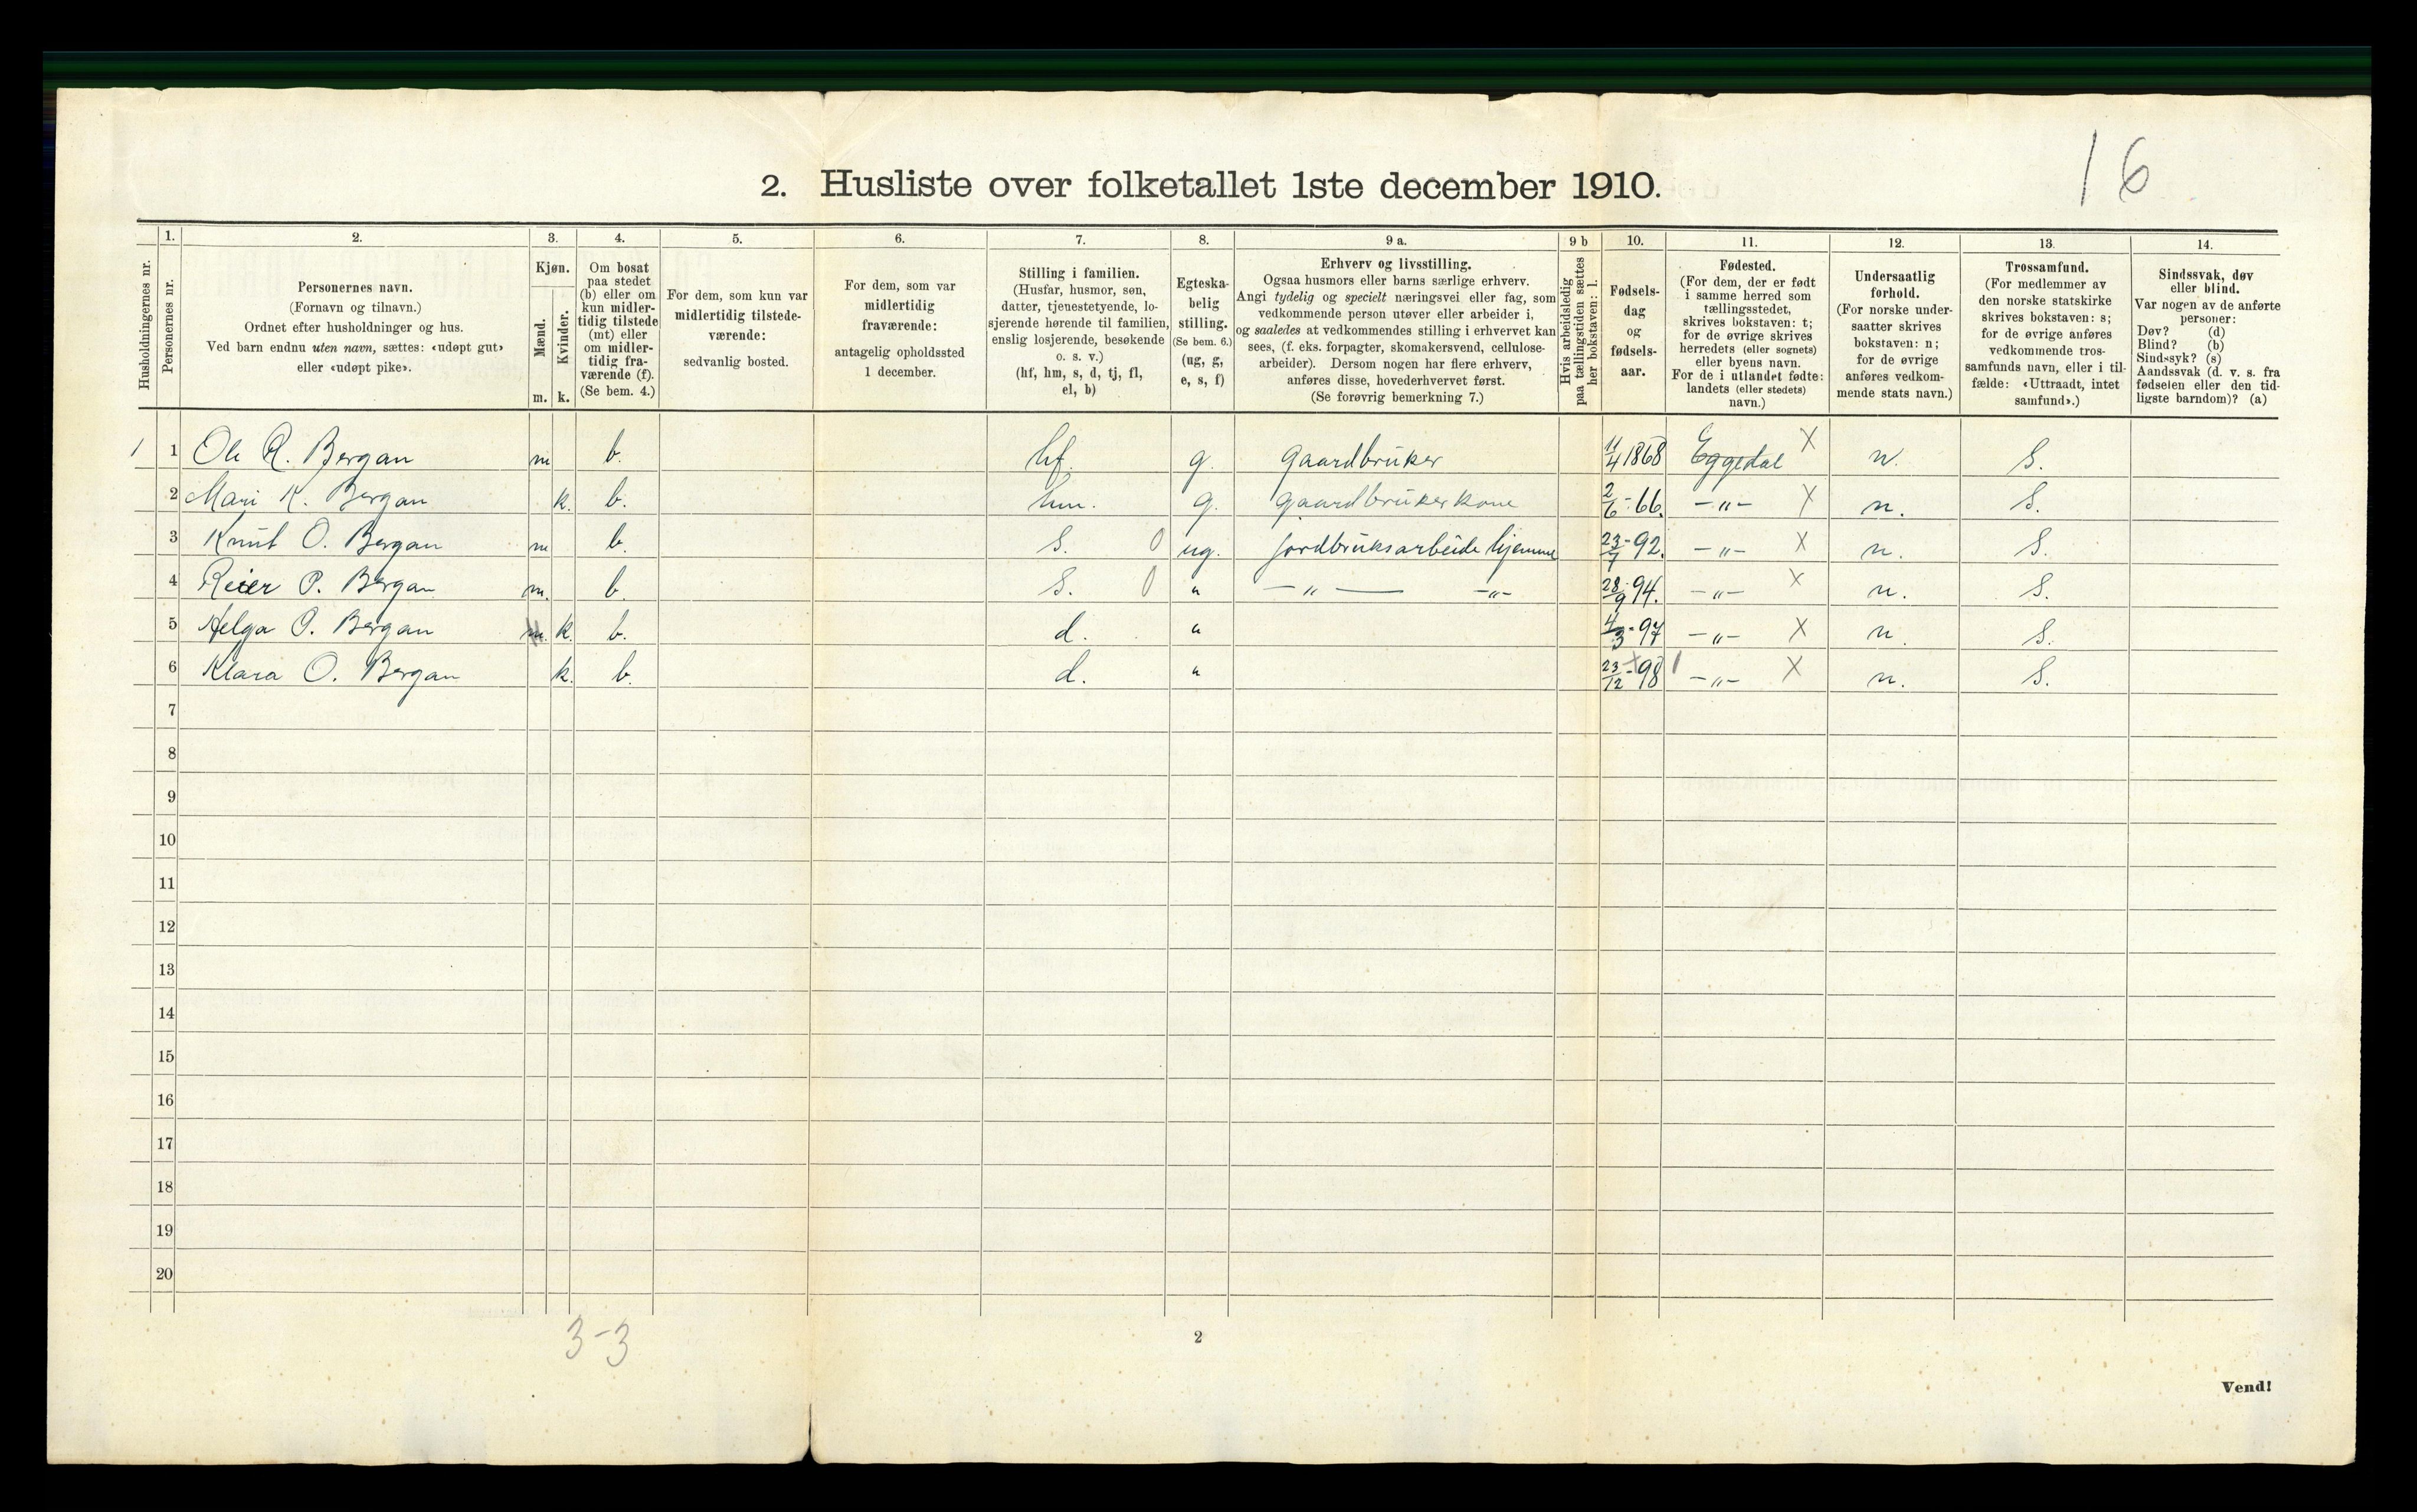 16
2. Husliste over folketallet 1ste december 1910.
Husholdningernes nr.
1.
Personernes nr.
2.
Personernes navn.
(Fornavn og tilnavn.)
Ordnet efter husholdninger og hus.
Ved barn endnu uten navn, sættes: «udøpt gut»
eller «udøpt pike».
3.
Kjøn.
Mænd.
Kvinder.
m. k.
4.
Om bosat
paa stedet
(b) eller om
kun midler-
tidig tilstede
(mt) eller
om midler-
tidig fra-
værende (f).
(Se bem. 4.)
5.
For dem, som kun var
midlertidig tilstede-
værende:
sedvanlig bosted.
6.
For dem, som var
midlertidig
fraværende:
antagelig opholdssted
1 december.
7.
Stilling i familien.
(Husfar, husmor, søn,
datter, tjenestetyende, lo-
sjerende hørende til familien,
enslig losjerende, besøkende
o. s. v.)
(hf, hm, s, d, tj, fl,
el, b)
8.
Egteska-
belig
stilling.
(Se bem. 6.)
(ug, g,
e, s, f)
9 a.
Erhverv og livsstilling.
Ogsaa husmors eller barns særlige erhverv.
Angi tydelig og specielt næringsvei eller fag, som
vedkommende person utøver eller arbeider i,
og saaledes at vedkommendes stilling i erhvervet kan
sees, (f. eks. forpagter, skomakersvend, cellulose-
arbeider). Dersom nogen har flere erhverv,
anføres disse, hovederhvervet først.
(Se forøvrig bemerkning 7.)
9 b
Hvis arbeidsledig
paa tællingstiden sættes
her bokstaven: l.
10.
Fødsels-
dag
og
fødsels-
aar.
11.
Fødested.
(For dem, der er født
i samme herred som
tællingsstedet,
skrives bokstaven: t;
for de øvrige skrives
herredets (eller sognets)
eller byens navn.
For de i utlandet fødte:
landets (eller stedets)
navn.)
12.
Undersaatlig
forhold.
(For norske under-
saatter skrives
bokstaven: n;
for de øvrige
anføres vedkom-
mende stats navn.)
13.
Trossamfund.
(For medlemmer av
den norske statskirke
skrives bokstaven: s;
for de øvrige anføres
vedkommende tros-
samfunds navn, eller i til-
fælde: «Uttraadt, intet
samfund».)
14.
Sindssvak, døv
eller blind.
Var nogen av de anførte
personer:
Døv? (d)
Blind? (b)
Sindssyk? (s)
Aandssvak (d. v. s. fra
fødselen eller den tid-
ligste barndom)? (a)
1 1 Ole R. Bergan m b. hf. g. gaardbruker 11/4 1868 Eggedal X n. S.
2 Mari K. Bergan k. b. hm. g. gaardbrukerkone 2/6-66. -"- X n. S.
3 Knut O. Bergan m b. S. 0 ug. jordbruksarbeide hjemme 23/7-92. -"- X n. S.
4 Reier O. Bergan m. b. S. 0 " -"- -"- 28/9-94. -"- X n. S.
5 Helga O. Bergan m. k. b. d. " 4/3-97 -"- X n. S.
6 Klara O. Bergan k. b. d. " 23/12-98 -"- X n. S.
7
8
9
10
11
12
13
14
15
16
17
18
19
20
3-3
2
Vend!